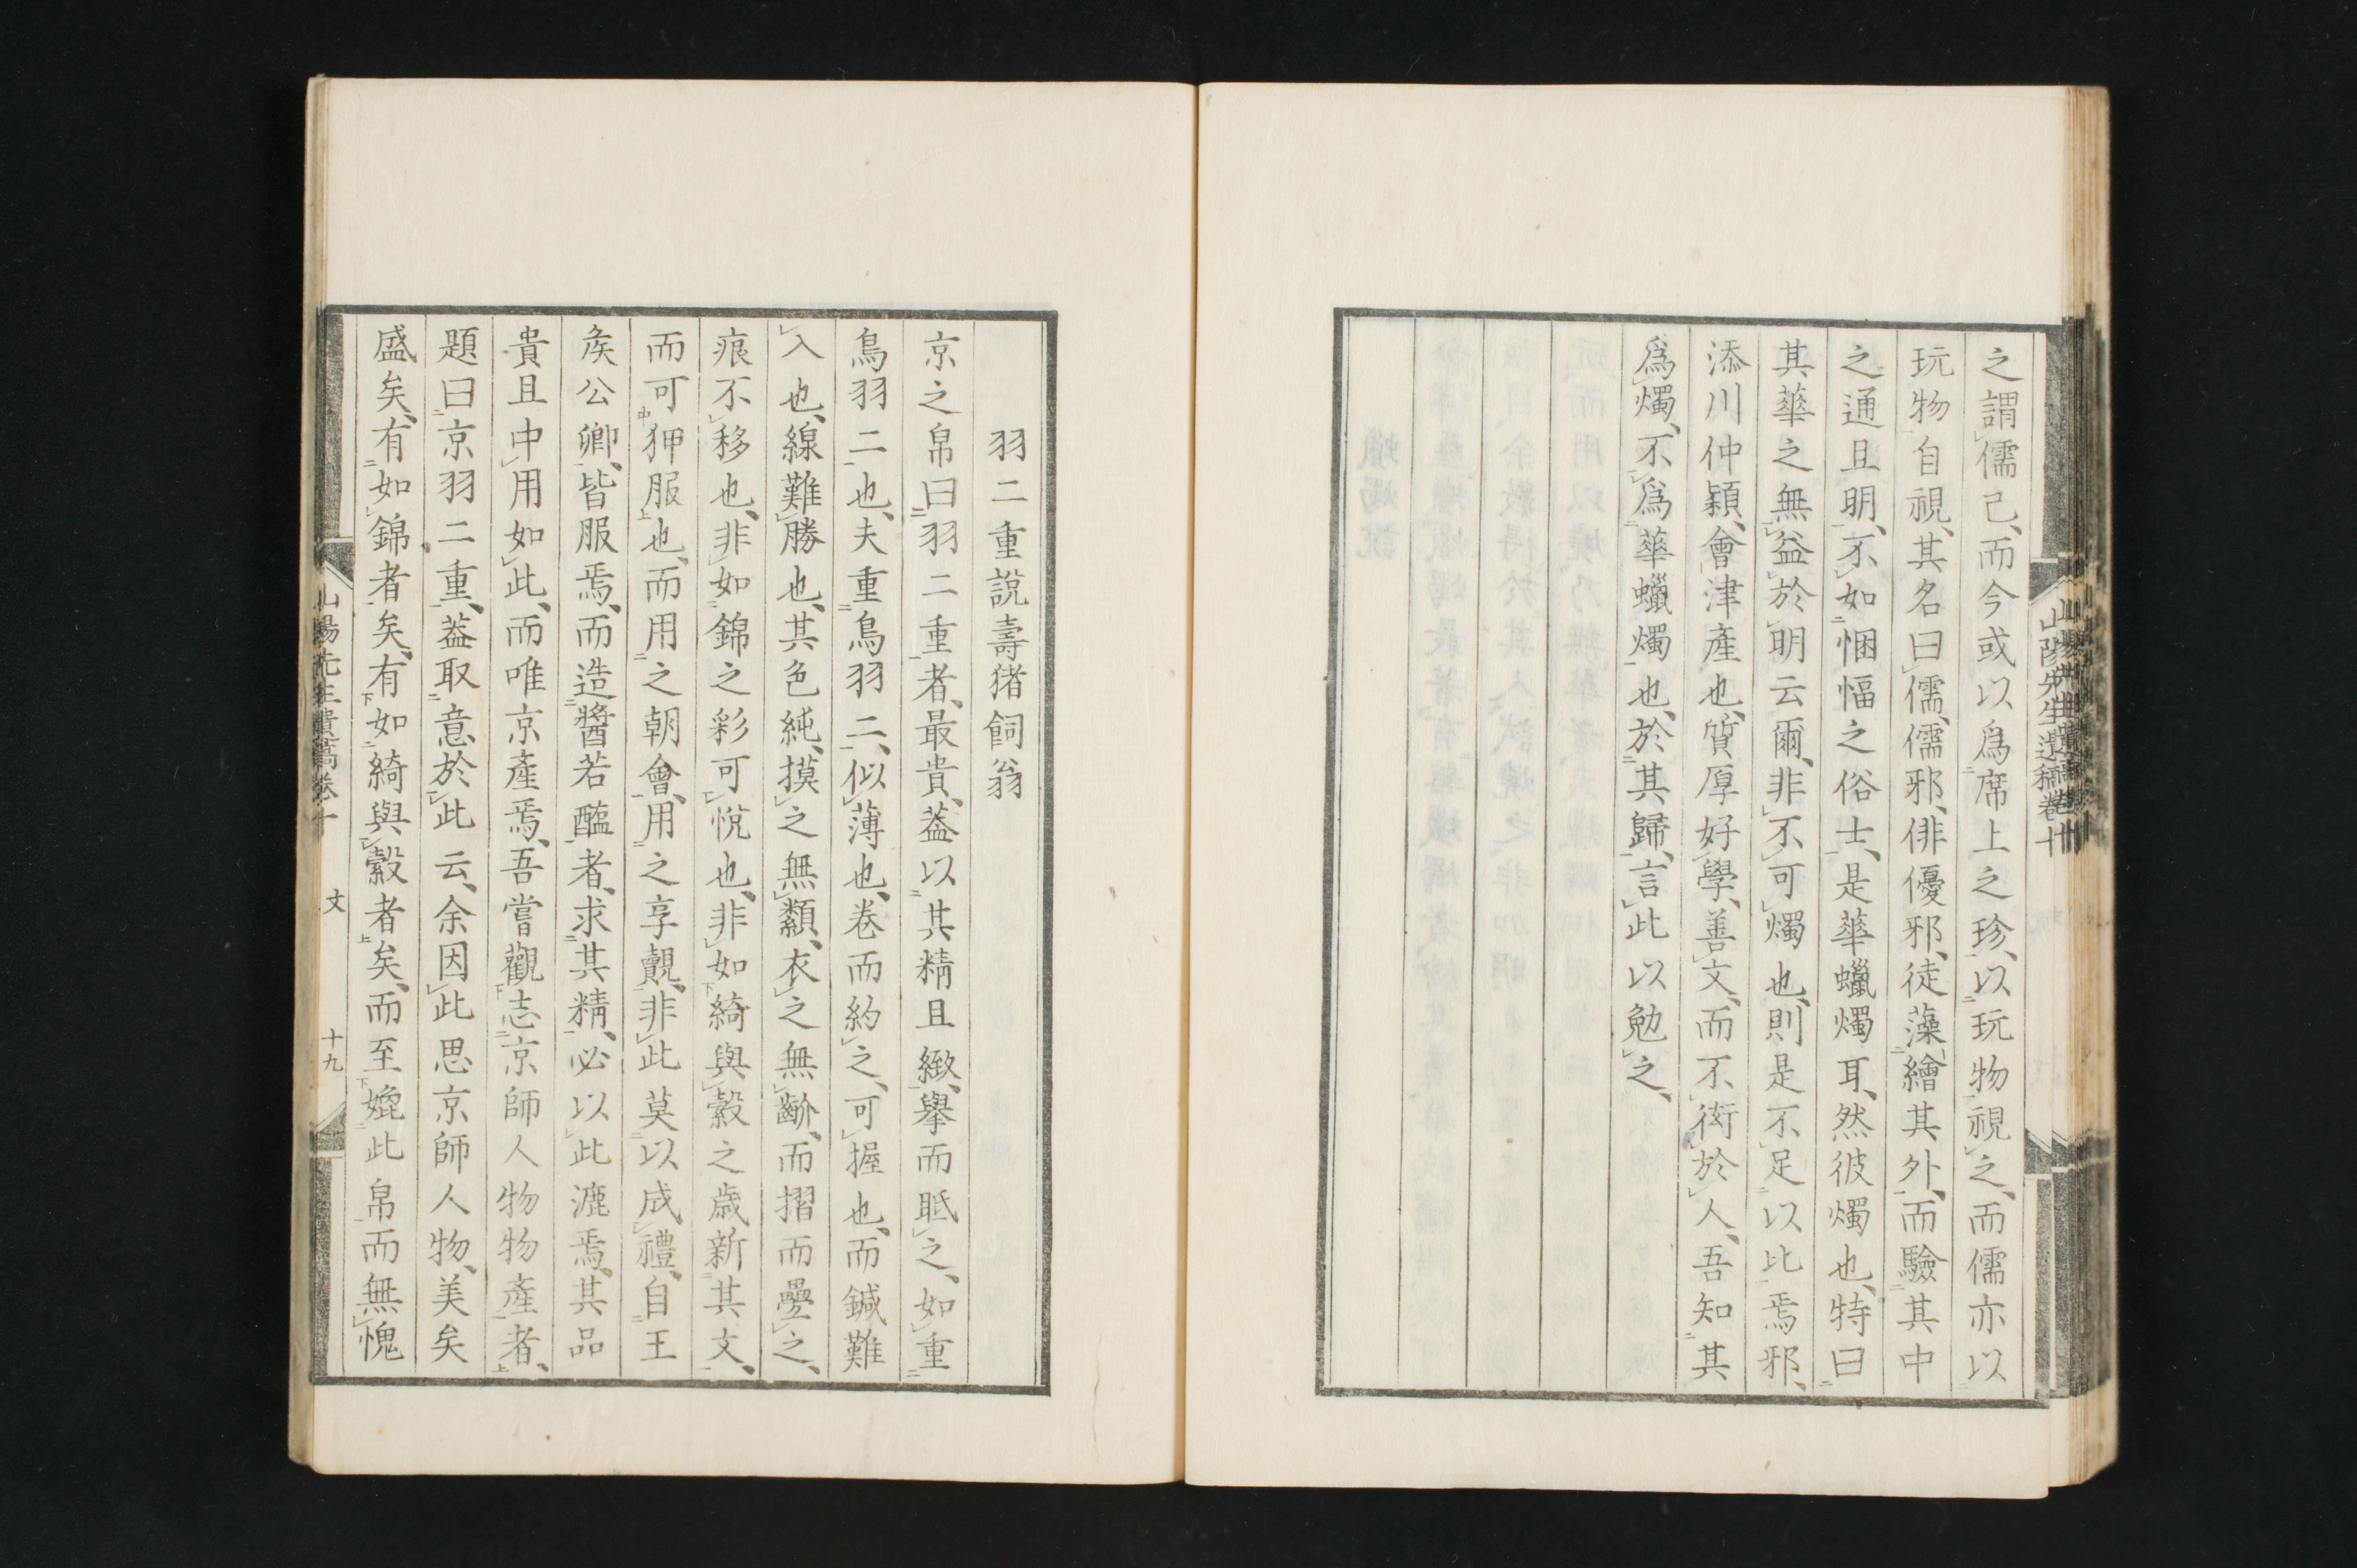 之謂儒己、而今或以爲席上之珍、以玩物視之、而儒亦以
玩物自視、其名曰儒、儒邪、俳優邪、徒藻繪其外、而驗其中
之通且明、不如悃愊之俗士、是華蠟燭耳、然彼燭也、特曰
其華之無益於明云爾、非不可燭也、則是不足以比焉邪、
添川仲穎、會津產也、質厚好學、善文、而不衒於人、吾知其
爲燭、不爲華蠟燭也、於其歸、言此以勉之、
山陽先生遺稿卷十
羽二重說壽猪飼翁
京之帛曰羽二重者、最貴、葢以其精且緻、擧而眡之、如重
鳥羽二也、夫重鳥羽二、似薄也、卷而約之、可握也、而鍼難
入也、線難勝也、其色純、摸之無纇、衣之無齘、而摺而疊之、
痕不移也、非如錦之彩可悅也、非如綺與縠之歲新其文、
而可狎服也、而用之朝會、用之享覿、非此莫以成禮、自王
矦公卿、皆服焉、而造醬若醢者、求其精、必以此漉焉、其品
貴且中用如此、而唯京產焉、吾嘗觀志京師人物物產者、
題曰京羽二重、葢取意於此云、余因此思京師人物、美矣
盛矣、有如錦者矣、有如綺與縠者矣、而至媲此帛而無愧
山陽先生遺稿卷十 文 十九